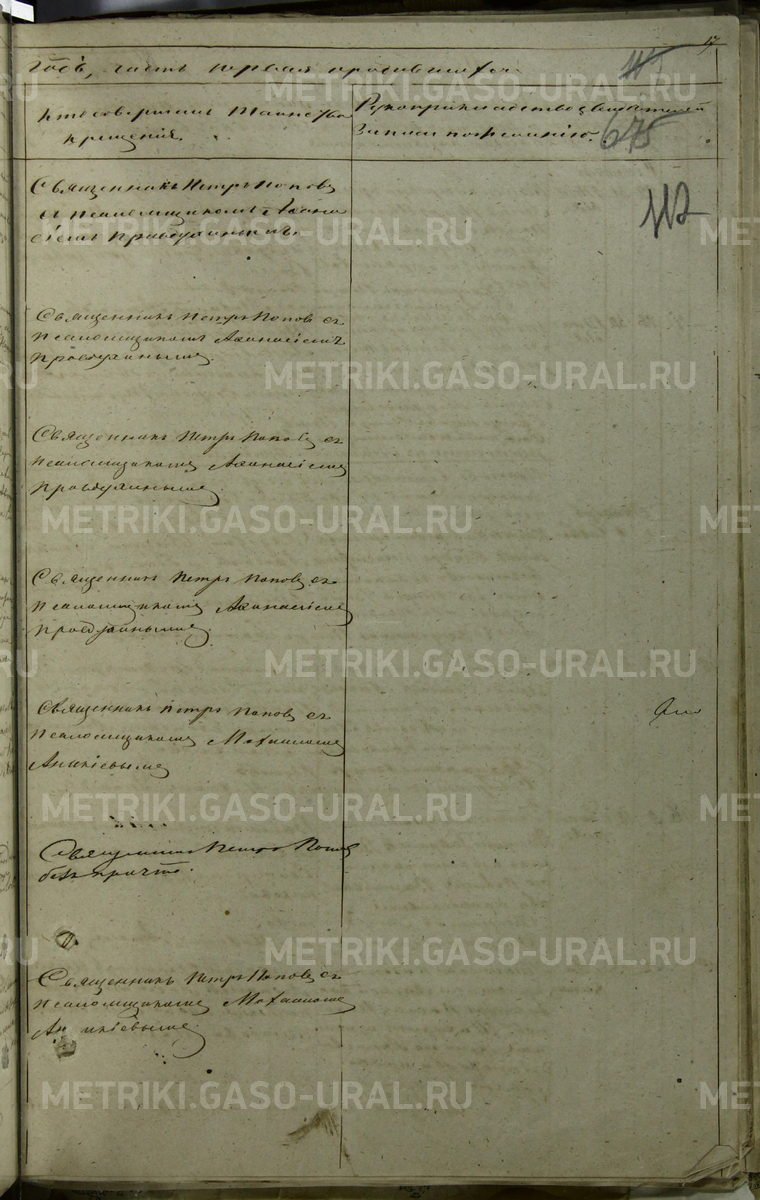 17
Годъ, часть первая о родившихся.
Кто совершалъ таинство
крещенія.
Рукоприкладство свидетелей
записи по желанію.
675
112
Священникъ Петръ Поповъ
съ псаломщикомъ Афана
сіемъ Правдухинымъ.
Священникъ Петръ Поповъ съ
псаломщикомъ Афанасіемъ
Правдухинымъ.
Священникъ Петръ Поповъ съ
псаломщикомъ Афанасіемъ
Правдухинымъ.
Священникъ Петръ Поповъ съ
псаломщикомъ Афанасіемъ
Правдухинымъ.
Священникъ Петръ Поповъ съ
псаломщикомъ Михаиломъ
Аникіевымъ
Священникъ Петръ Поповъ
безъ причта.
Священникъ Петръ Поповъ съ
псаломщикомъ Михаиломъ
Аникіевымъ.
METRIKI.GASO-URAL.RU